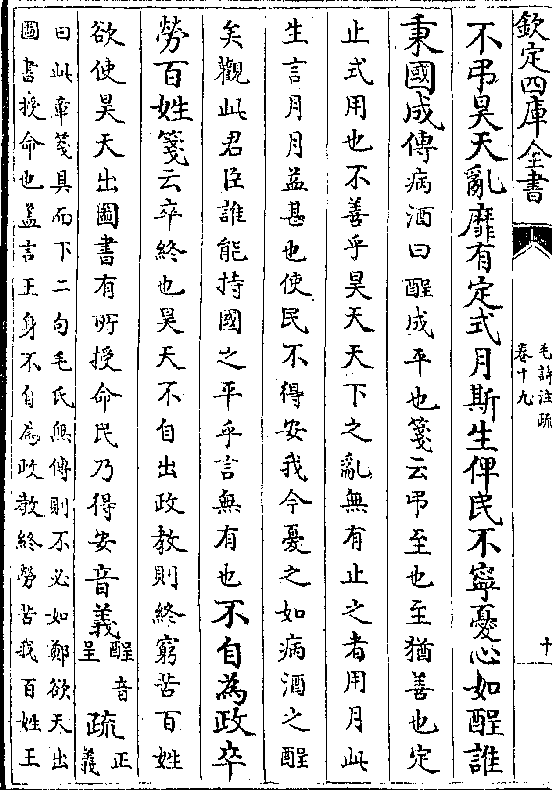 欽定四庫全書
毛詩注疏
卷十九
十
不弔昊天亂靡有定式月斯生俾民不寧憂心如酲誰
秉國成傳病酒曰酲成平也箋云弔至也至猶善也定
止式用也不善乎昊天天下之亂無有止之者用月此
生言月月益甚也使民不得安我今憂之如病酒之酲
矣觀此君臣誰能持國之平乎言無有也不自為政卒
勞百姓箋云卒終也昊天不自出政教則終窮苦百姓
欲使昊天出圖書有所授命民乃得安音義酲音呈疏正義
曰此章箋具而下二句毛氏無傳則不必如鄭欲天出
圖書授命也蓋言王身不自為政教終勞苦我百姓王